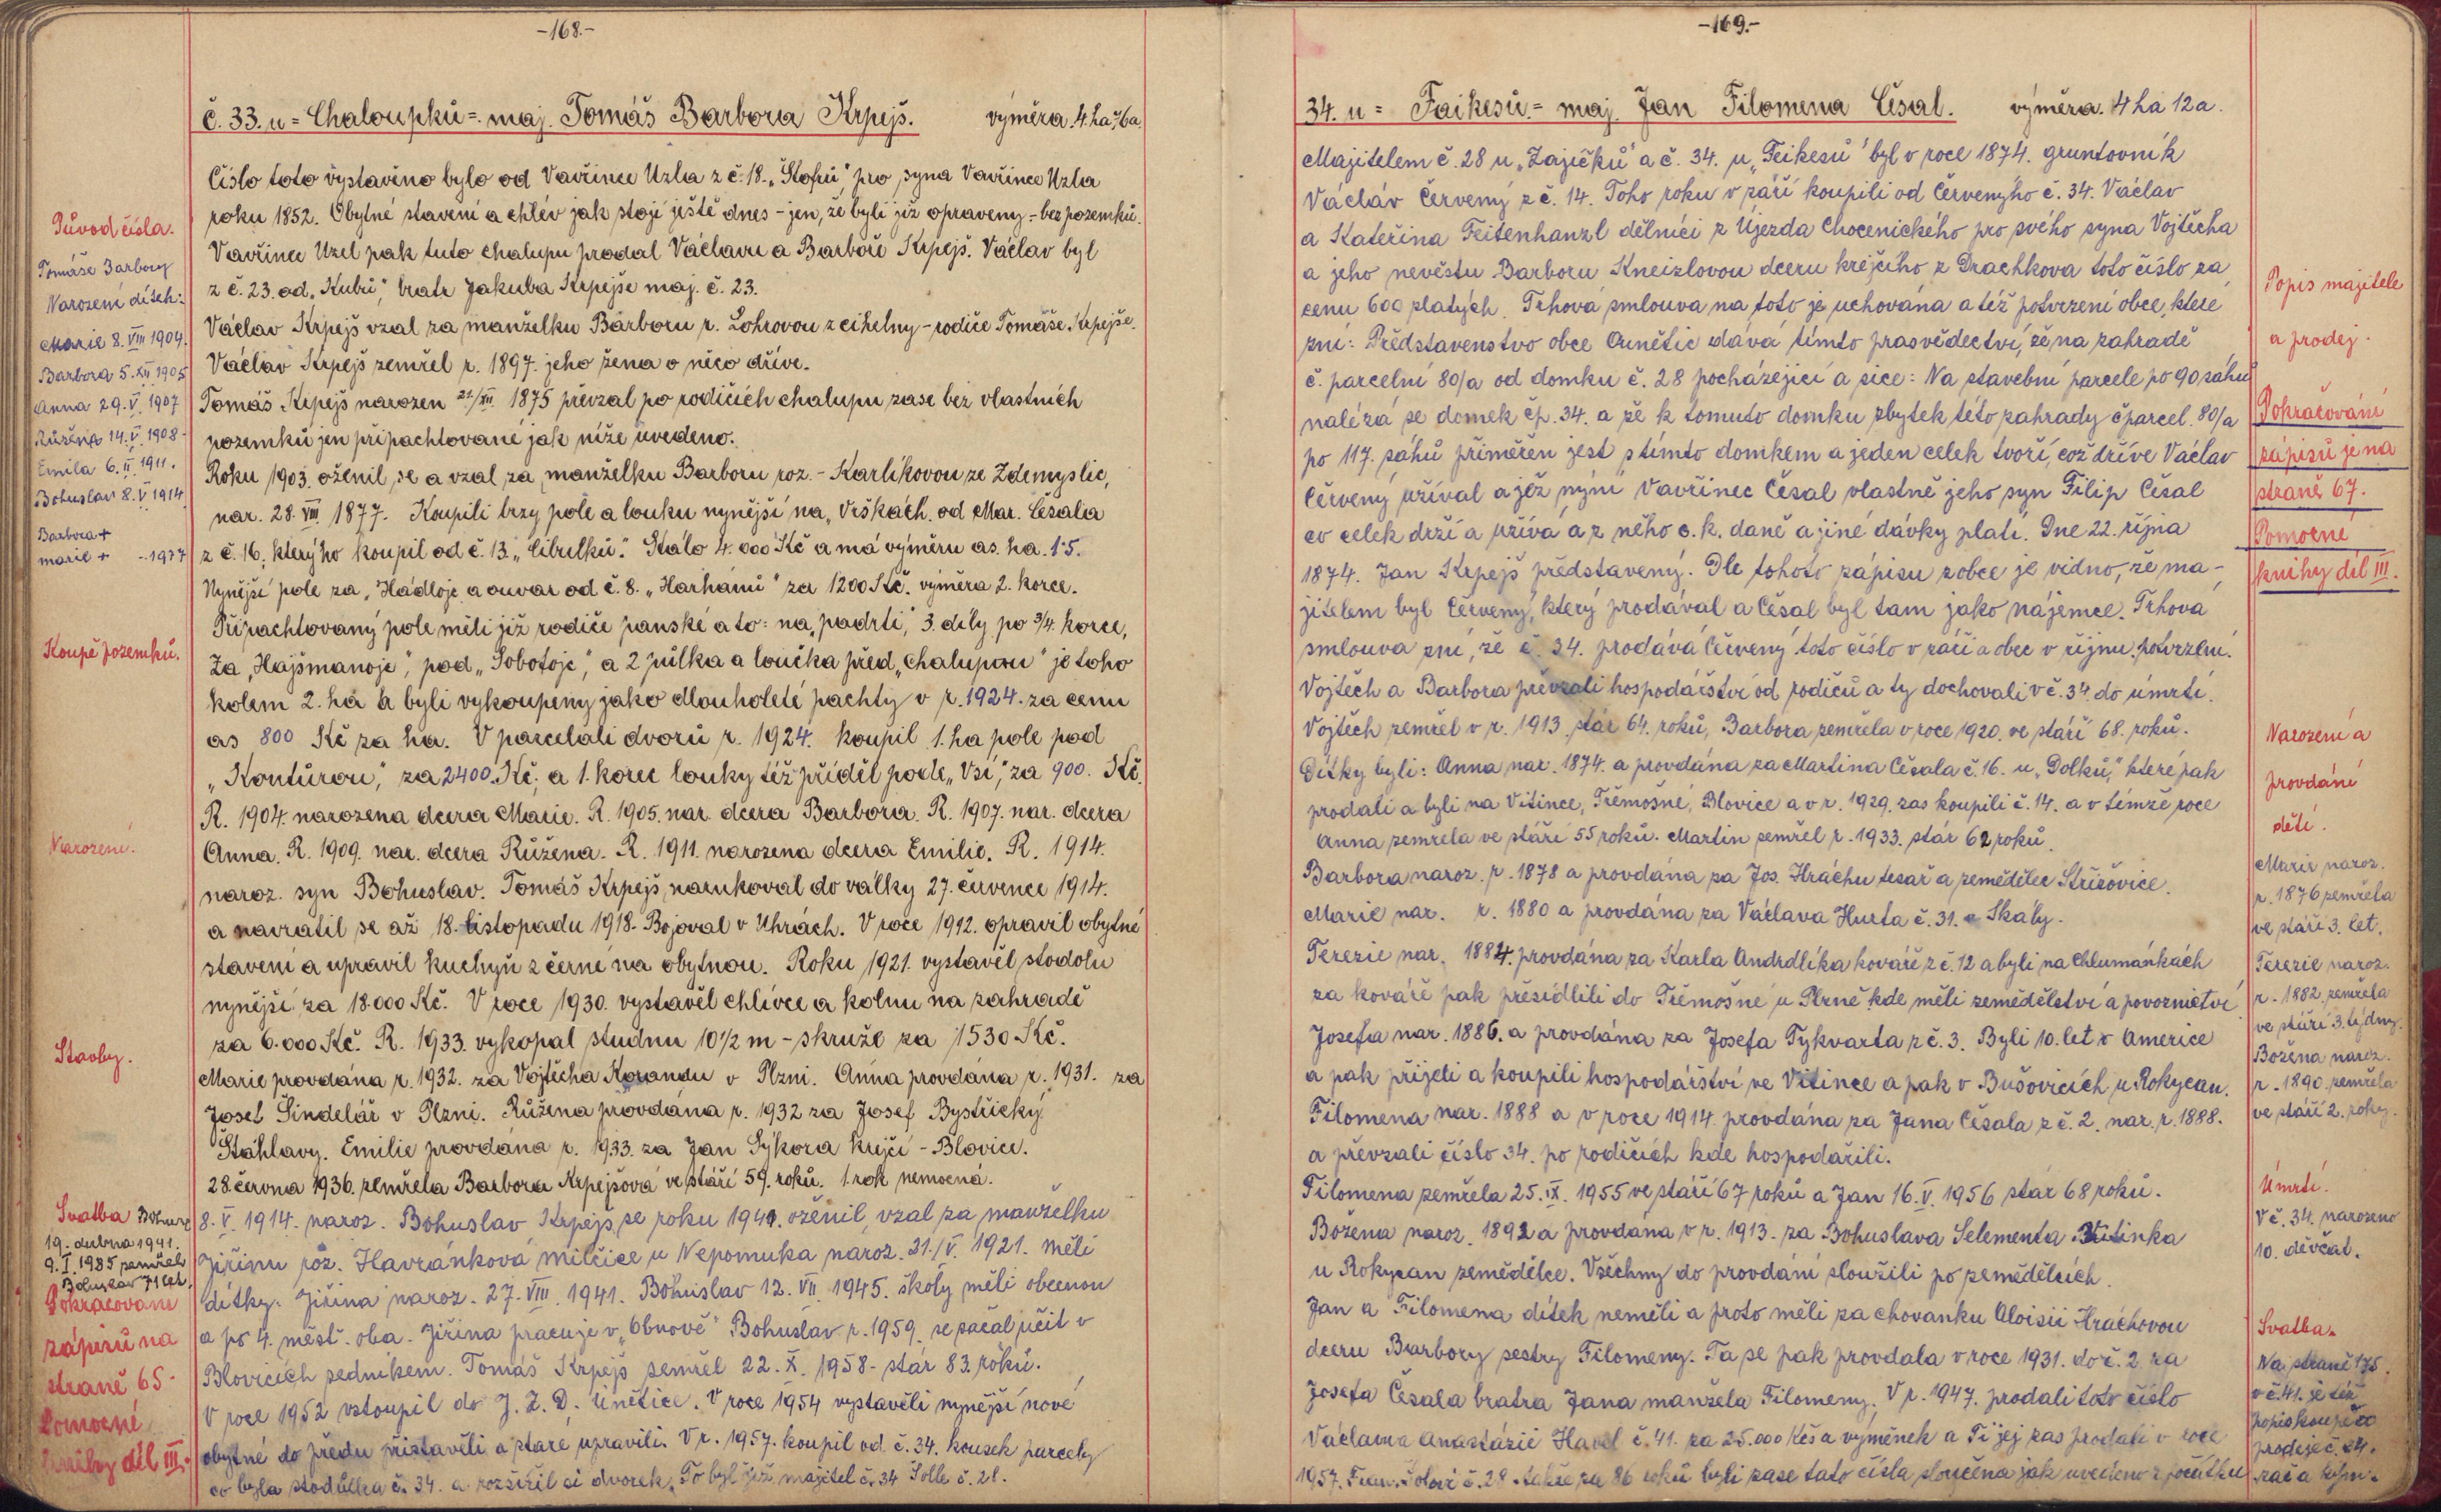 -168.-
č. 33. u = Chaloupků =. maj. Tomáš Barbora Krpejš. výměra. 4. ha
Číslo toto vystavěno bylo od Vavřince Uzla z č. 18. „Štofů", pro syna Vavřince Uzla
roku 1852. Obytné stavení a chlév jak stojí ještě dnes - jen, že byli již opraveny, - bez pozemků.
Vavřinec Uzel pak tuto chalupu prodal Václavu a Barboře Krpejš. Václav byl
z č. 23. od „Kubů", bratr Jakuba Krpejše maj. č. 23.
Václav Krpejš vzal za manželku Barboru r. Lohrovou z cihelny - rodiče Tomáše Krpejše.
Václav Krpejš zemřel r. 1897. jeho žena o něco dříve.
Tomáš Krpejš narozen 21/XII. 1875 převzal po rodičích chalupu zase bez vlastních
pozemků jen připachtované jak níže uvedeno.
Roku 1903. oženil se a vzal za manželku Barboru roz. - Karlíkovou ze Zdemyslic,
nar. 28. VIII 1877. Koupili brzy pole a louku nynější na „Vrškách. od Mar. Česala
z č. 16, kterýho koupil od č. 13 „Cibulků." Stálo 4.000 Kč a má výměru as. ha. 1·5.
Nynější pole za „Hádloje a ouvar od č. 8. „Harhamů" za 1200 Kč. výměra 2. korce.
Připachtovaný pole měli již rodiče panské a to: na „padrti", 3. díly po 3/4. korce,
Za „Hajšmanoje", pod „Sobotoje", a 2 půlka a loučka před „Chalupou" je toho
kolem 2. ha a byli vykoupeny jako dlouholeté pachty v r. 1924. za cenu
as 800 Kč za ha. V parcelaci dvorů r. 1924. koupil 1. ha pole pod
„Kontůrou", za 2400. Kč. a 1. korec louky též příděl podle „Vsi", za 900. Kč.
R. 1904. narozena dcera Marie. R. 1905. nar. dcera Barbora. R. 1907. nar. dcera
Anna. R. 1909. nar. dcera Růžena. R. 1911. narozena dcera Emilie. R. 1914.
naroz. syn Bohuslav. Tomáš Krpejš narukoval do války 27. července 1914.
a navrátil se až 18. listopadu 1918. Bojoval v Uhrách. V roce 1912. opravil obytné
stavení a upravil kuchyň z černé na obytnou. Roku 1921. vystavěl stodolu
nynější za 18.000 Kč. V roce 1930. vystavěl chlívce a kolnu na zahradě
za 6.000 Kč. R. 1933. vykopal studnu 10 1/2 m - skruže za 1530 Kč.
Marie provdána r. 1932. za Vojtěcha Korandu v Plzni. Anna provdána r. 1931. za
Josef Šindelář v Plzni. Růžena provdána r. 1932 za Josef Bystřický
Štáhlavy. Emilie provdána r. 1933. za Jan Sýkora krejčí - Blovice.
28. června 1936. zemřela Barbora Krpejšová ve stáří 59. roků. 1. rok nemocná.
8. V. 1914. naroz. Bohuslav Krpejš, se roku 1941. oženil, vzal za manželku
Jiřinu roz. Havránková Milčice u Nepomuka naroz. 21./V. 1921. Měli
dítky. Jiřina naroz. 27. VIII. 1941. Bohuslav 12. VII. 1945. školy měli obecnou
a po 4. měšť. oba. Jiřina pracuje v „Obnově" Bohuslav r. 1959. se začal učit v
Blovicích zedníkem. Tomáš Krpejš zemřel 22. X. 1958 - stár 83. roků.
V roce 1952 vstoupil do J. Z. D. Únětice. V roce 1954 vystavěli nynější nové
obytné do předu přistavěli a staré upravili. V r. 1957. koupil od č. 34. kousek parcely
co byla stodůlka č. 34. a rozšířil si dvorek. To byl již majitel č. 34 Šolle č. 28.
Původ čísla.
Tomáše Barbory
Narození dítek:
Marie 8. VIII 1904.
Barbora 5. XII 1905
Anna 29. V. 1907
Růžena 14. V. 1908
Emila 6. II. 1911.
Bohuslav 8. V 1914
Barbora +
marie + - 1977
Koupě pozemků.
Narození.
Stavby.
Svatba
19. dubna 1941.
9. I. 1985 zemřel
Bohuslav 71 let.
Pokračování
zápisů na
straně 65.
Pomocné
knihy díl III.
-169.-
34. u = Faikesů = maj. Jan Filomena Česal. výměra. 4 ha 12 a.
Majitelem č. 28 u „Zajíčků" a č. 34. u „Feikesů" byl v roce 1874. gruntovník
Václav Červený z č. 14. Toho roku v září koupili od Červenýho č. 34. Václav
a Kateřina Feitenhanzl dělníci z Újezda Chocenického pro svého syna Vojtěcha
a jeho nevěstu Barboru Kneizlovou dceru krejčího z Drachkova toto číslo za
cenu 600 zlatých. Trhová smlouva na toto je uchována a též potvrzení obce, které
zní: Představenstvo obce Ounětic dává tímto prasvědectví, že na zahradě
č. parcelní 80/a od domku č. 28 pocházející a sice: Na stavební parcele po 90 sáhu
nalézá se domek čp. 34. a že k tomuto domku zbytek této zahrady č parcel. 80/a
po 117. sáhů přiměřen jest s tímto domkem a jeden celek tvoří, což dříve Václav
Červený užíval a jež nyní Vavřinec Česal vlastně jeho syn Filip Česal
co celek drží a užívá a z něho c. k. daně a jiné dávky platí. Dne 22. října
1874. Jan Krpejš představený. Dle tohoto zápisu z obce je vidno, že ma-
jitelem byl Červený, který prodával a Česal byl tam jako nájemce. Trhová
smlouva zní, že č. 34. prodává Červený toto číslo v září a obec v říjnu. potvrzení.
Vojtěch a Barbora převzali hospodářství od rodičů a ty dochovali v č. 34 do úmrtí.
Vojtěch zemřel v r. 1913. stár 64. roků, Barbora zemřela v roce 1920. ve stáří 68. roků.
Dítky byli: Anna nar. 1874. a provdána za Martina Česala č. 16. u „Dolků", které pak
prodali a byli na Vitince, Třemošné, Blovice a v r. 1929. zas koupili č. 14. a v témže roce
Anna zemřela ve stáří 55 roků. Martin zemřel r. 1933. stár 62 roků.
Barbora naroz. r. 1878 a provdána za Jos. Hráchu tesař a zemědělec Střížovice.
Marie nar. r. 1880 a provdána za Václava Hurta č. 31. Skály.
Terezie nar. 1884. provdána za Karla Andrdlíka kováře z č. 12 a byli na Chlumánkách
za kováře pak přesídlili do Třemošné u Plzně kde měli zemědělství a povoznictví
Josefa nar. 1886. a provdána za Josefa Tykvarta z č. 3. Byli 10. let v Americe
a pak přijeli a koupili hospodářství ve Vitince a pak v Bušovicích u Rokycan.
Filomena nar. 1888 a v roce 1914. provdána za Jana Česala z č. 2. nar. r. 1888.
a převzali číslo 34. po rodičích kde hospodařili.
Filomena zemřela 25. IX. 1955 ve stáří 67 roků a Jan 16. V. 1956 stár 68 roků.
Božena naroz. 1892 a provdána v r. 1913. za Bohuslava Selementa Vitinka
u Rokycan zemědělce. Všechny do provdání sloužili po zemědělcích.
Jan a Filomena dítek neměli a proto měli za chovanku Aloisii Hráchovou
dceru Barbory sestry Filomeny. Ta se pak provdala v roce 1931. do č. 2 za
Josefa Česala bratra Jana manžela Filomeny. V r. 1947. prodali toto číslo
Václavu Anastázii Havel č. 41. za 25.000 Kčs a výměnek a Ti jej zas prodali v roce
1957. č. 28. takže za 86 roků byli zase tato čísla sloučena jak uvedeno z počátku
Popis majitele
a prodej.
Pokračování
zápisů je na
straně 67.
Pomocné
knihy díl III.
Narození a
provdání
dětí.
Marie naroz.
r. 1876 zemřela
ve stáří 3. let.
Terezie naroz.
r. 1882 zemřela
ve stáří 3. týdny.
Božena naroz.
r. 1890 zemřela
ve stáří 2. roky.
Úmrtí.
V č. 34. narozeno
10. děvčat.
Svatba.
Na straně 175.
v č. 41. je též
popis koupě a
prodeje č. 34.